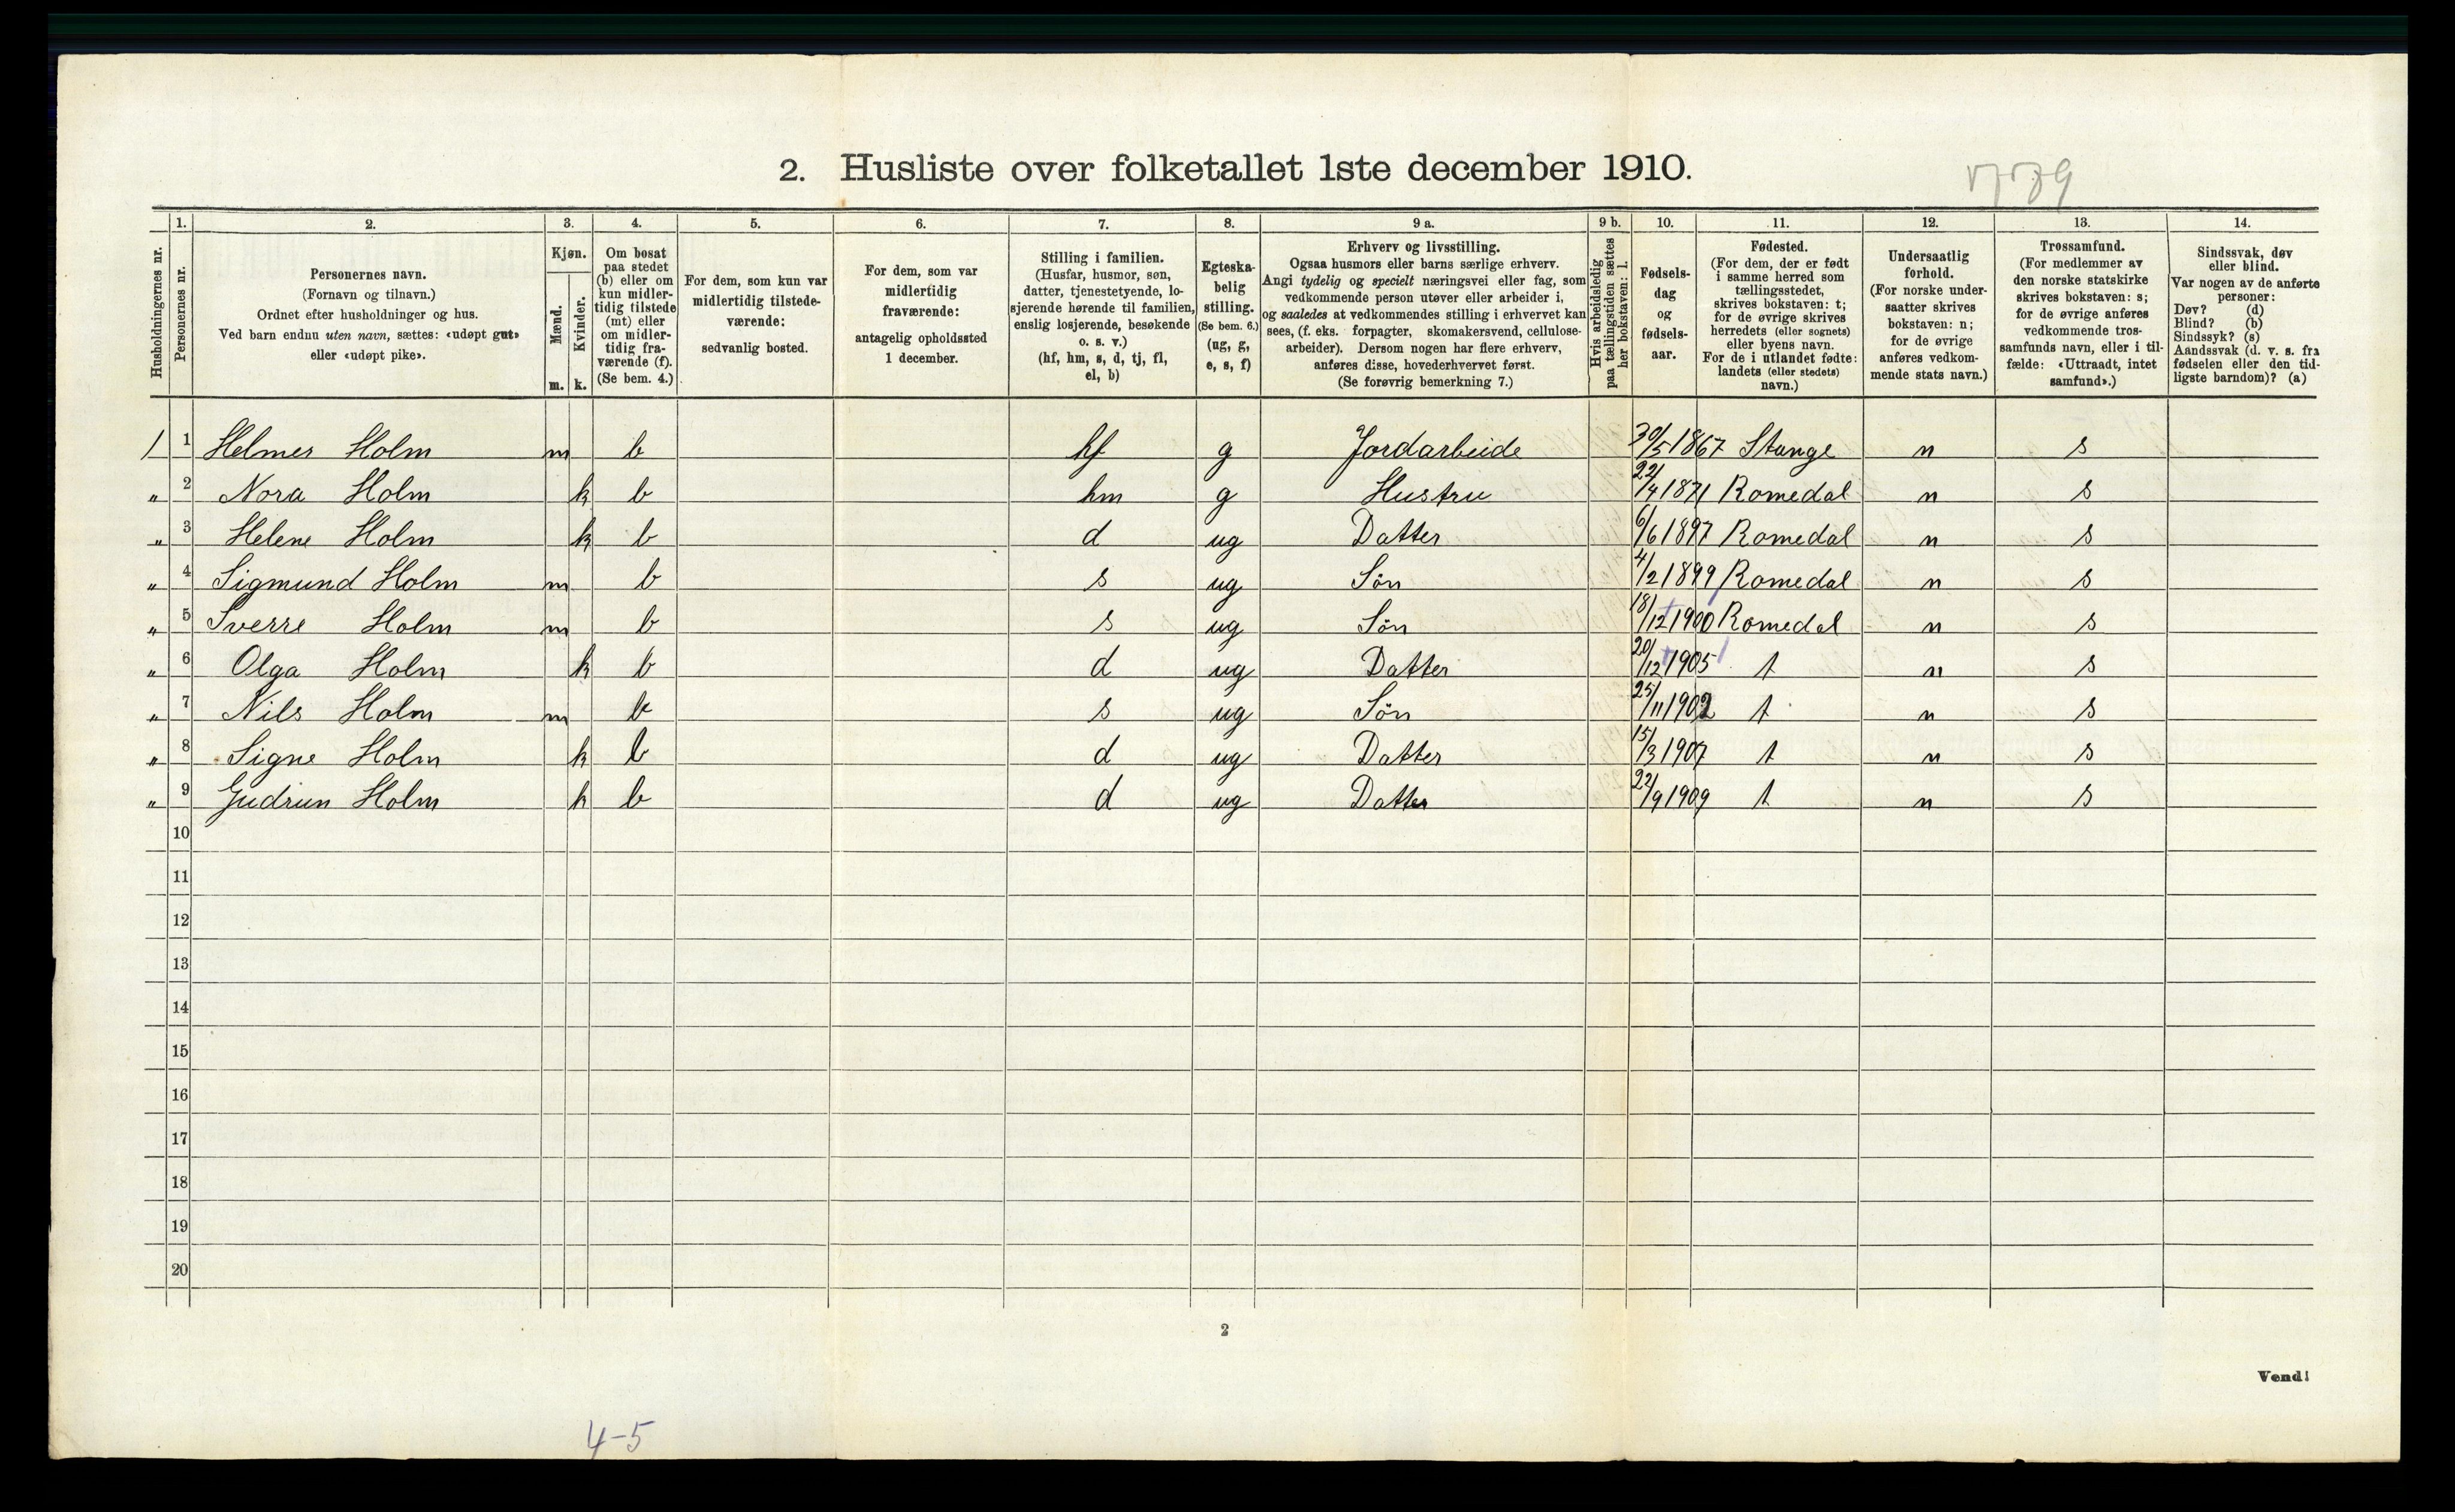 2. Husliste over folketallet 1ste december 1910.
Husholdningernes nr.
1.
Personernes nr.
2.
Personernes navn.
(Fornavn og tilnavn.)
Ordnet efter husholdninger og hus.
Ved barn endnu uten navn, sættes: «udøpt gut»
eller «udøpt pike».
3.
Kjøn.
Mænd.
m.
Kvinder.
k.
4.
Om bosat
paa stedet
(b) eller om
kun midler-
tidig tilstede
(mt) eller
om midler-
tidig fra-
værende (f).
(Se bem. 4.)
5.
For dem, som kun var
midlertidig tilstede-
værende:
sedvanlig bosted.
6.
For dem, som var
midlertidig
fraværende:
antagelig opholdssted
1 december.
7.
Stilling i familien.
(Husfar, husmor, søn,
datter, tjenestetyende, lo-
sjerende hørende til familien,
enslig losjerende, besøkende
o. s. v.)
(hf, hm, s, d, tj, fl,
el, b)
8.
Egteska-
belig
stilling.
(Se bem. 6.)
(ug, g,
e, s, f)
9 a.
Erhverv og livsstilling.
Ogsaa husmors eller barns særlige erhverv.
Angi tydelig og specielt næringsvei eller fag, som
vedkommende person utøver eller arbeider i,
og saaledes at vedkommendes stilling i erhvervet kan
sees, (f. eks. forpagter, skomakersvend, cellulose-
arbeider). Dersom nogen har flere erhverv,
anføres disse, hovederhvervet først.
(Se forøvrig bemerkning 7.)
9 b.
Hvis arbeidsledig
paa tællingstiden sættes
her bokstaven: l.
10.
Fødsels-
dag
og
fødsels-
aar.
11.
Fødested.
(For dem, der er født
i samme herred som
tællingsstedet,
skrives bokstaven: t;
for de øvrige skrives
herredets (eller sognets)
eller byens navn.
For de i utlandet fødte:
landets (eller stedets)
navn.)
12.
Undersaatlig
forhold.
(For norske under-
saatter skrives
bokstaven: n;
for de øvrige
anføres vedkom-
mende stats navn.)
13.
Trossamfund.
(For medlemmer av
den norske statskirke
skrives bokstaven: s;
for de øvrige anføres
vedkommende tros-
samfunds navn, eller i til-
fælde: «Uttraadt, intet
samfund».)
14.
Sindssvak, døv
eller blind.
Var nogen av de anførte
personer:
Døv? (d)
Blind? (b)
Sindssyk? (s)
Aandssvak (d. v. s. fra
fødselen eller den tid-
ligste barndom)? (a)
1 1 Helmer Holm m b hf g Jordarbeide 30/5 1867 Stange n s
" 2 Nora Holm k b hm g Hustru 22/4 1871 Romedal n s
" 3 Helene Holm k b d ug Datter 6/6 1897 Romedal n s
" 4 Sigmund Holm m b s ug Søn 4/2 1899 Romedal n s
" 5 Sverre Holm m b s ug Søn 18/12 1900 Romedal n s
" 6 Olga Holm k b d ug Datter 20/12 1905 t n s
" 7 Nils Holm m b s ug Søn 25/11 1902 t n s
" 8 Signe Holm k b d ug Datter 15/3 1907 t n s
" 9 Gudrun Holm k b d ug Datter 22/9 1909 t n s
10
11
12
13
14
15
16
17
18
19
20
2
Vend!
4-5